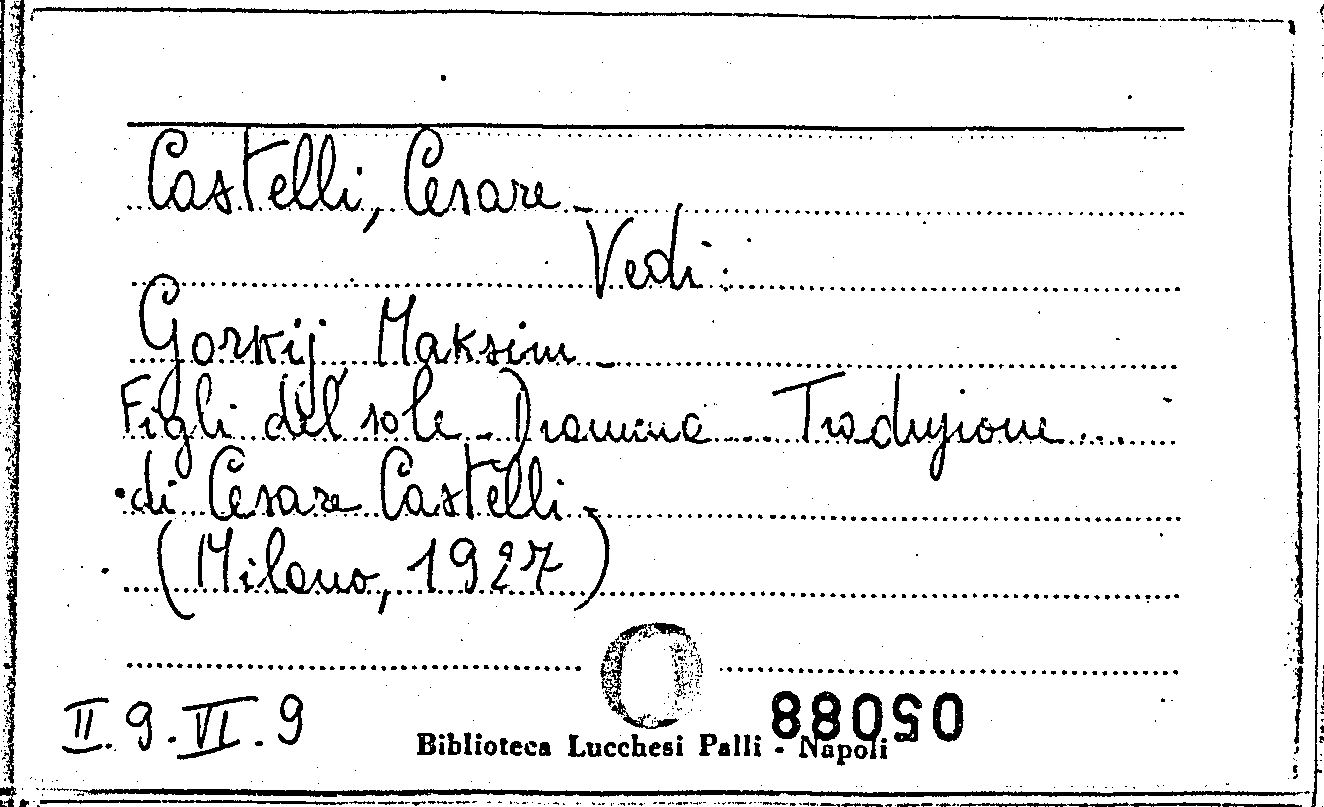 Castelli, Cesare -
Vedi:
Gorkij, Maksim -
Figli del sole - Dramma - Traduzione
di Cesare Castelli -
(Milano, 1927)
II. 9. VI. 9
05088
Biblioteca Lucchesi Palli - Napoli